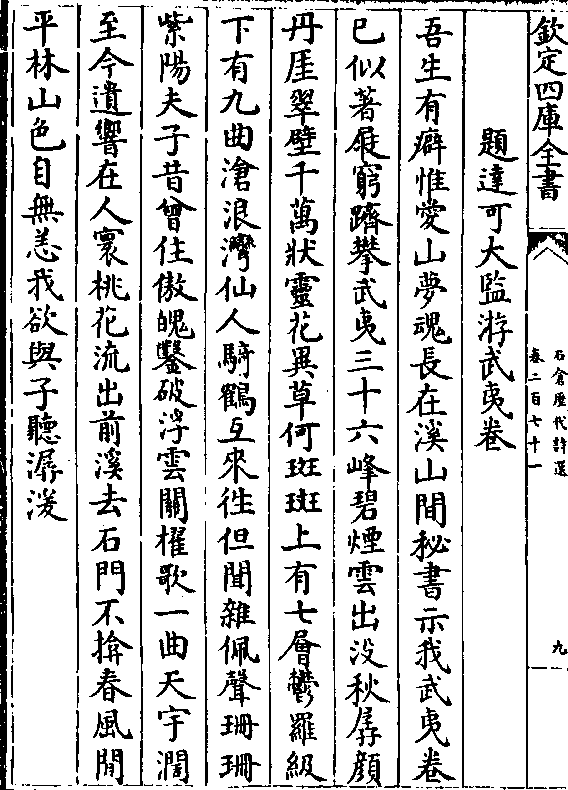 欽定四庫全書
石倉歷代詩選
卷二百七十一
九
題達可大監游武夷卷
吾生有癖惟愛山夢魂長在溪山間秘書示我武夷卷
已似著屐窮躋攀武夷三十六峰碧煙雲出没秋孱顔
丹厓翠壁千萬狀靈花異草何斑斑上有七層鬱羅級
下有九曲滄浪灣仙人騎鶴互來徃但聞雜佩聲珊珊
紫陽夫子昔曾住傲睨鑿破浮雲關櫂歌一曲天宇濶
至今遺響在人寰桃花流出前溪去石門不揜春風閒
平林山色自無恙我欲與子聽潺湲